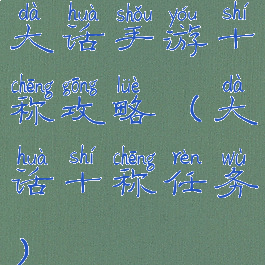 dà huà shǒu yóu shí
大话手游十
chēng gōng lüè dà
称攻略(大
huà shí chēng rèn wù
话十称任务
)